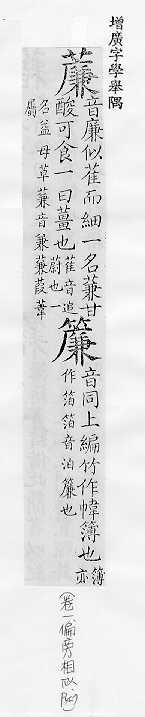 增廣字學舉隅
薕
音廉似萑而細一名蒹甘
酸可食一曰薑也
萑音追
蔚也一
名益母草蒹音兼蒹葭葦
屬
簾
音同上編竹作幃簿也
簿亦
作箔箔音泊簾也
(卷一、偏旁相似、